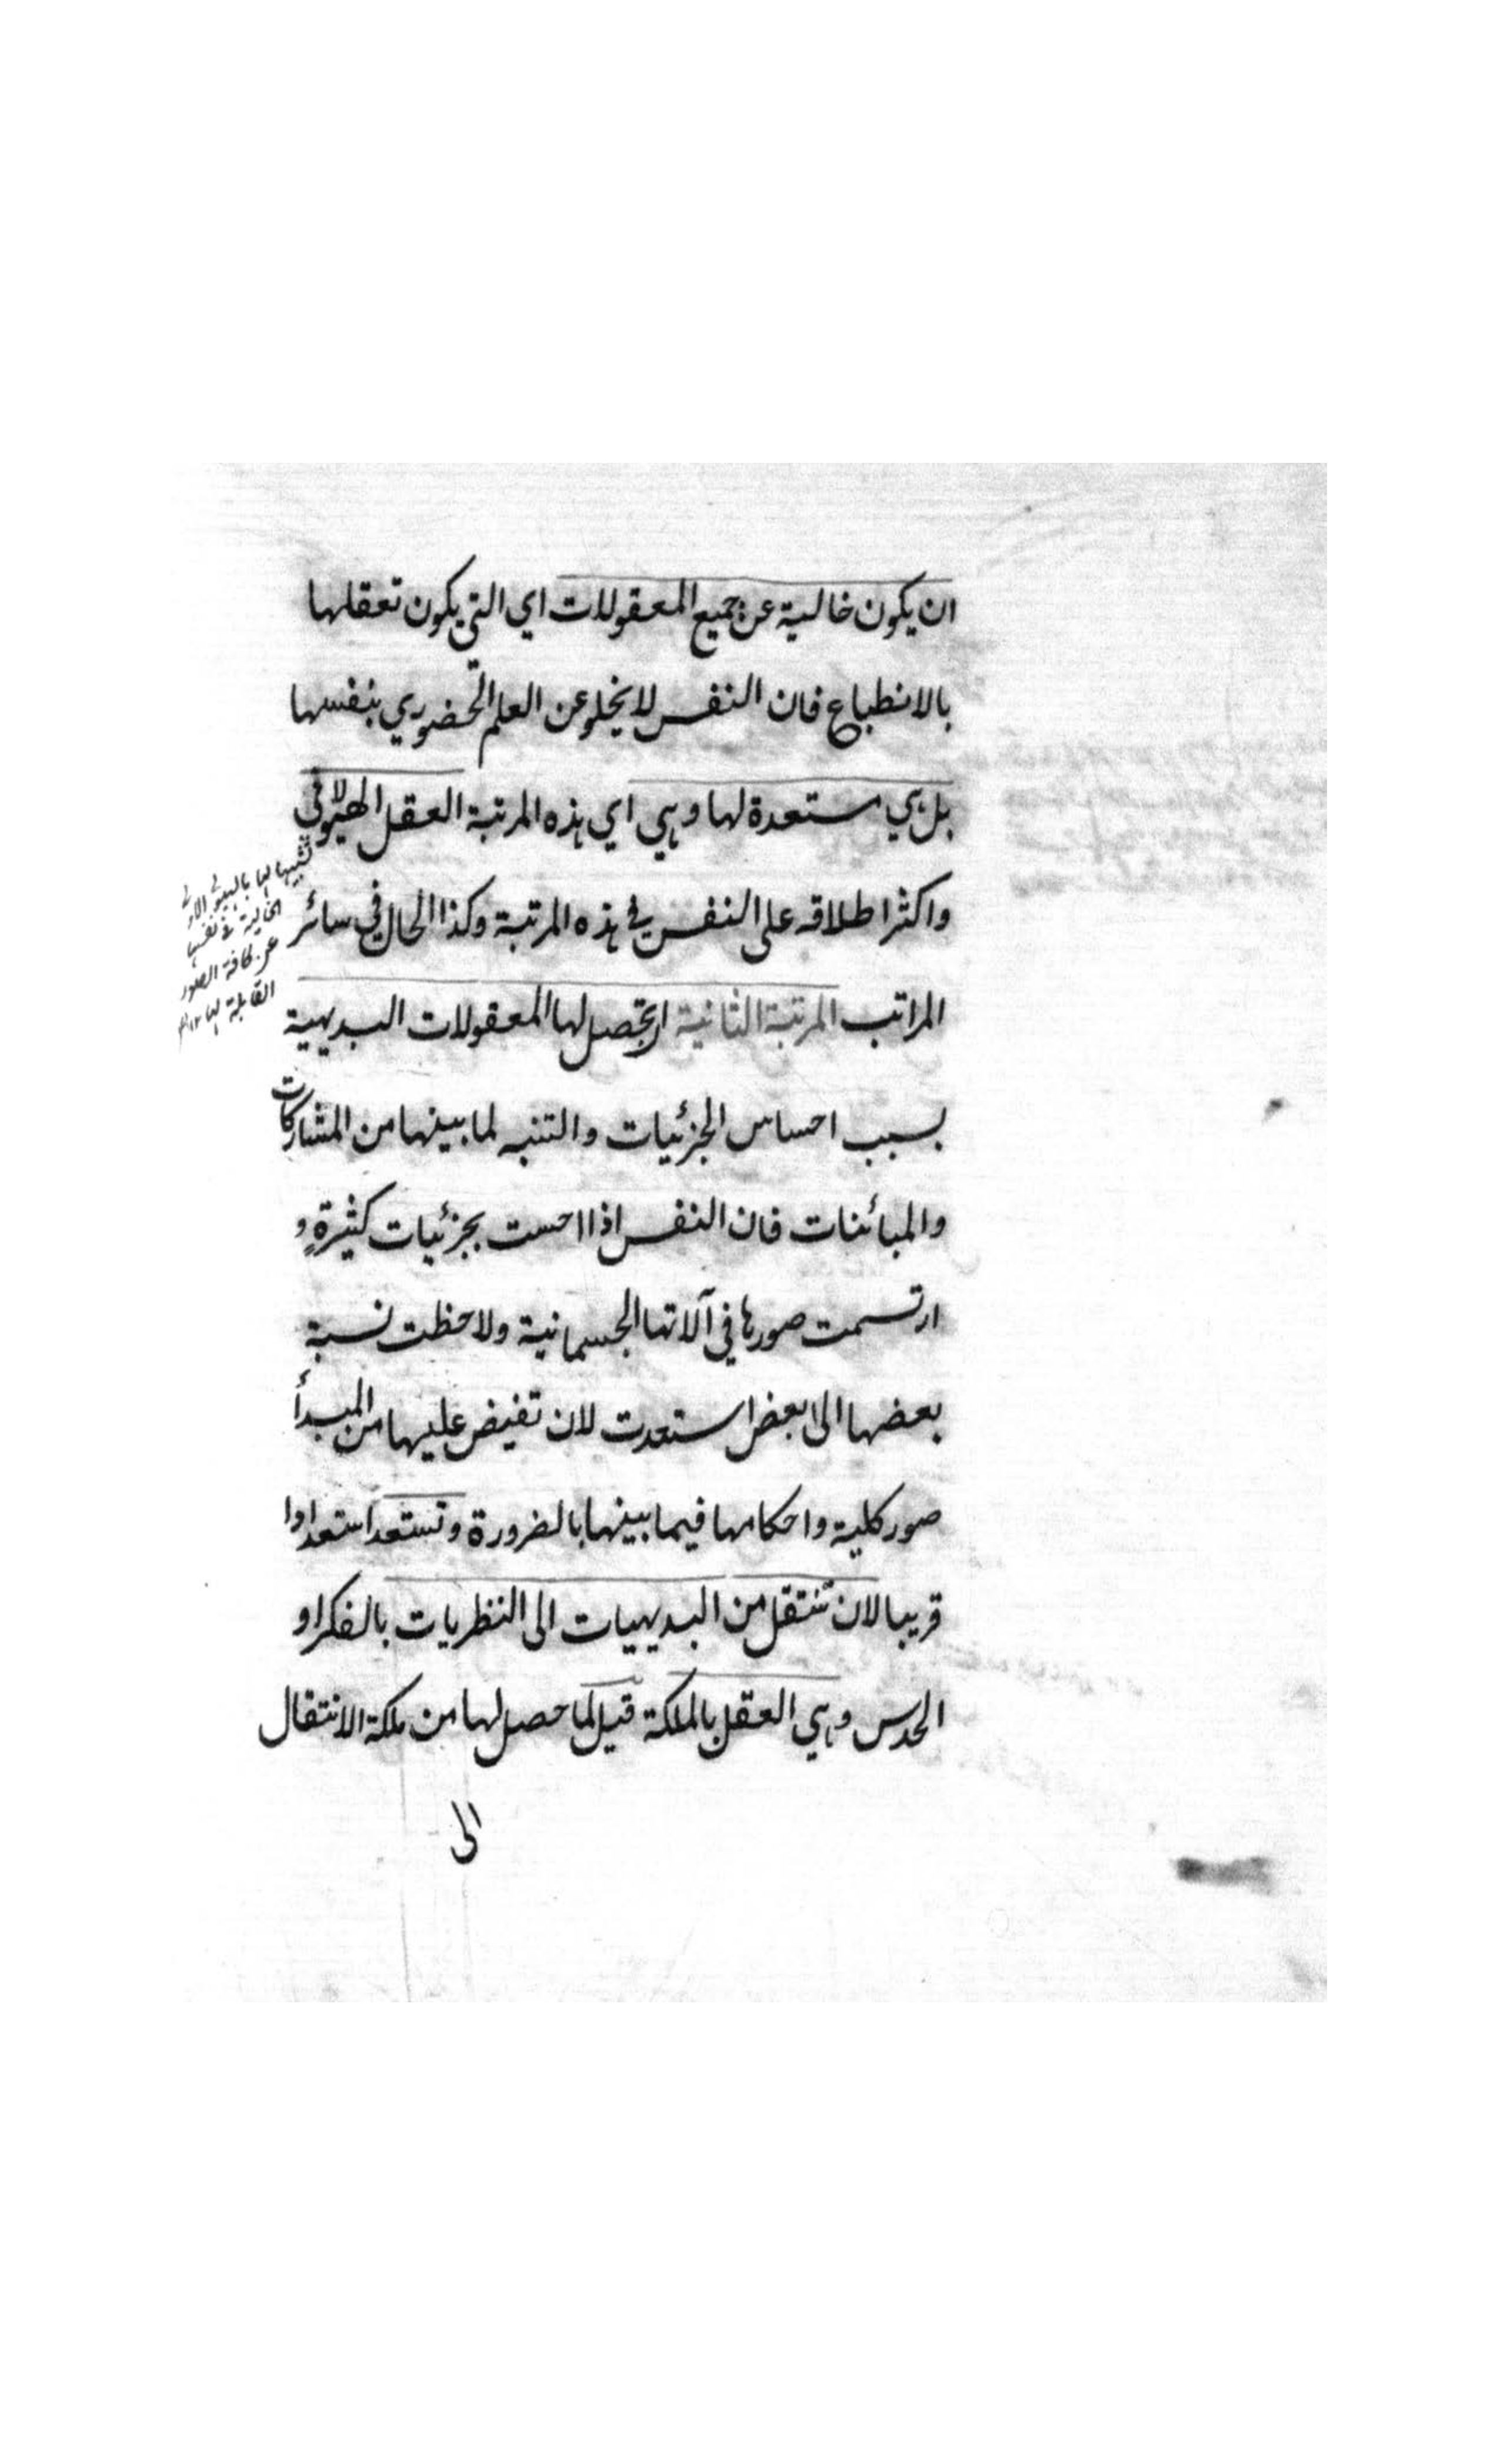 ان يكون خالية عن جميع المعقولات اي التي يكون تعقلها
بالانطباع فان النفس لا يخلو عن العلم الحضوري بنفسها
بل هي مستعدة لها وهي اي هذه المرتبة العقل الهيولاني
واكثر اطلاقه على النفس في هذه المرتبة وكذا الحال في سائر
المراتب المرتبة الثانية ان تحصل لها المعقولات البديهية
بسبب احساس الجزئيات والتنبه لما بينها من المشاركات
والمبائنات فان النفس اذا احست بجزئيات كثيرة و
ارتسمت صورها في آلاتها الجسمانية ولاحظت نسبة
بعضها الى بعض استعدت لان تفيض عليها من المبدأ
صور كلية واحكامها فيما بينها بالضرورة وتستعد استعدادا
قريبا لان تنتقل من البديهيات الى النظريات بالفكر او
الحدس وهي العقل بالملكة قيل لما حصل لها من ملكة الانتقال
الى
تشبيها لها بالهيولى الاولى
الخالية في نفسها
عن كافة الصور
القابلة لها ١٢